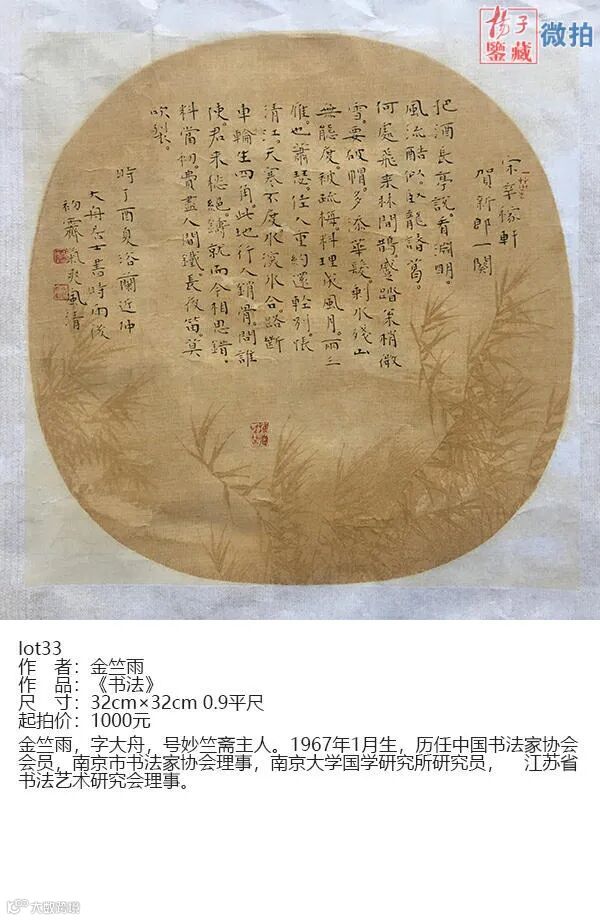 揚子
鑒藏
微拍
宋辛稼軒
賀新郎一闋
把酒長亭說。看淵明。
風流酷似。臥龍諸葛。
何處飛來林間鵲。蹙踏松梢微
雪。要破帽。多添華髮。剩水殘山
無態度。被疏梅。料理成風月。兩三
雁。也蕭瑟。佳人重約還輕別。悵
清江。天寒不度。水深冰合。路斷
車輪生四角。此地行人銷骨。問誰
使。君來愁絕。鑄就而今相思錯。
料當初。費盡人間鐵。長夜笛。莫
吹裂。
時丁酉夏浴蘭近仲
大舟居士書時雨後
初霽氣爽風清
lot33
作 者：金竺雨
作 品：《书法》
尺 寸：32cm×32cm 0.9平尺
起拍价：1000元
金竺雨，字大舟，号妙竺斋主人。1967年1月生，历任中国书法家协会
会员，南京市书法家协会理事，南京大学国学研究所研究员， 江苏省
书法艺术研究会理事。
大数跨境